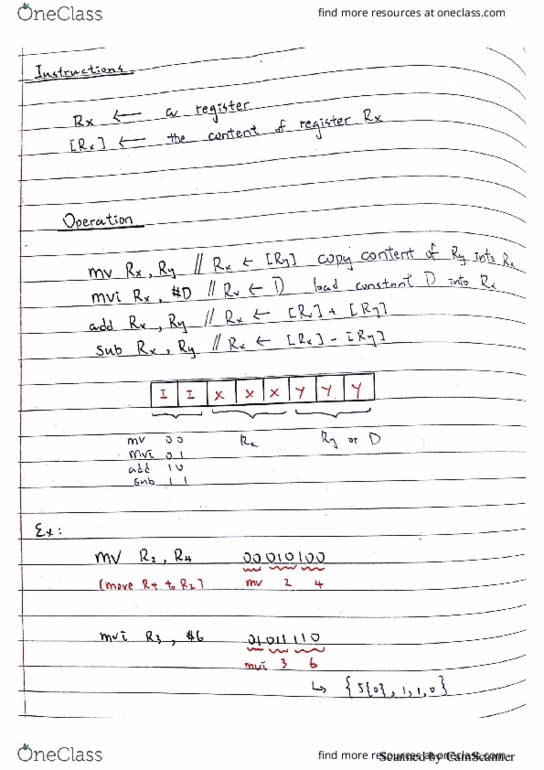 OneClass
find more resources at oneclass.com
Instructions
Rx ← a register
[Rx] ← the content of register Rx
Operation
mv Rx, Ry // Rx ← [Ry] copy content of Ry into Rx
mvi Rx, #D // Rx ← D load constant D into Rx
add Rx, Ry // Rx ← [Rx] + [Ry]
sub Rx, Ry // Rx ← [Rx] - [Ry]
I I X X X Y Y Y
mv 00 Rx Ry or D
mvi 01
add 10
sub 11
Ex:
mv R2, R4 00010100
(move R4 to R2) mv 2 4
mvi R3, #6 01011110
mvi 3 6
↳ {5{0}, 1, 1, 0}
OneClass
find more resources at oneclass.com
Scanned by CamScanner